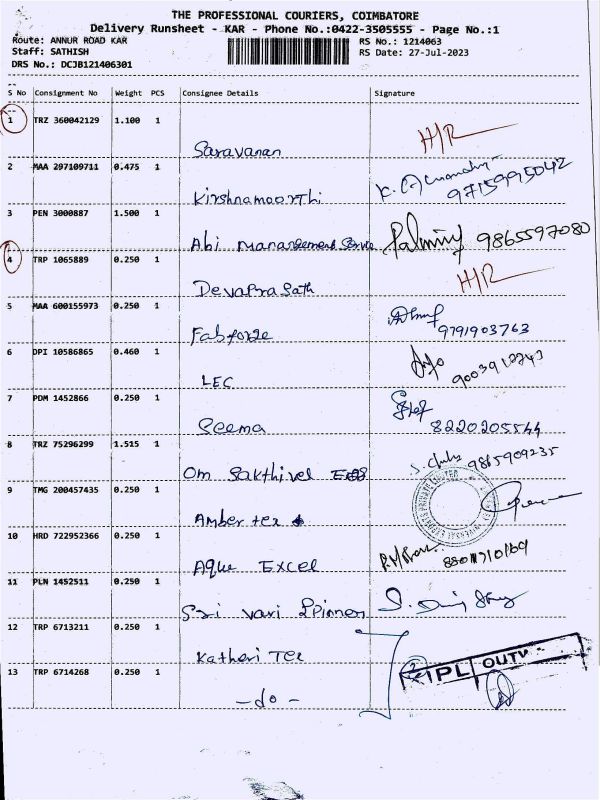 THE PROFESSIONAL COURIERS, COIMBATORE
Delivery Runsheet - KAR - Phone No.:0422-3505555 - Page No.:1
Route: ANNUR ROAD KAR RS No.: 1214063
Staff: SATHISH RS Date: 27-Jul-2023
DRS No.: DCJB121406301
S No Consignment No Weight PCS Consignee Details Signature
1 TRZ 360042129 1.100 1
Saravanan H/R
2 MAA 297109711 0.475 1
Kirshnamoorthi 9715995042
3 PEN 3000887 1.500 1
Abi Management 9865597080
4 TRP 1065889 0.250 1
DevaPrasath H/R
5 MAA 600155973 0.250 1
Fabforze 9791903763
6 DPI 10586865 0.460 1
LEC
7 PDM 1452866 0.250 1
Seema 8220205544
8 TRZ 75296299 1.515 1
Om Sakthivel 9865909235
9 TMG 200457435 0.250 1
Amber tex
10 HRD 722952366 0.250 1
Aqua Excel
11 PLN 1452511 0.250 1
Sri Vari Spinners
12 TRP 6713211 0.250 1
Katheri Tex
13 TRP 6714268 0.250 1
IPL OUTW
- do -